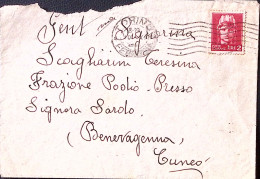 Gent Signorina
Scagliarini Teresina
Frazione Podio-Presso
Signora Sardo
(Benevagenna)
Cuneo
TORINO
LIRE 2